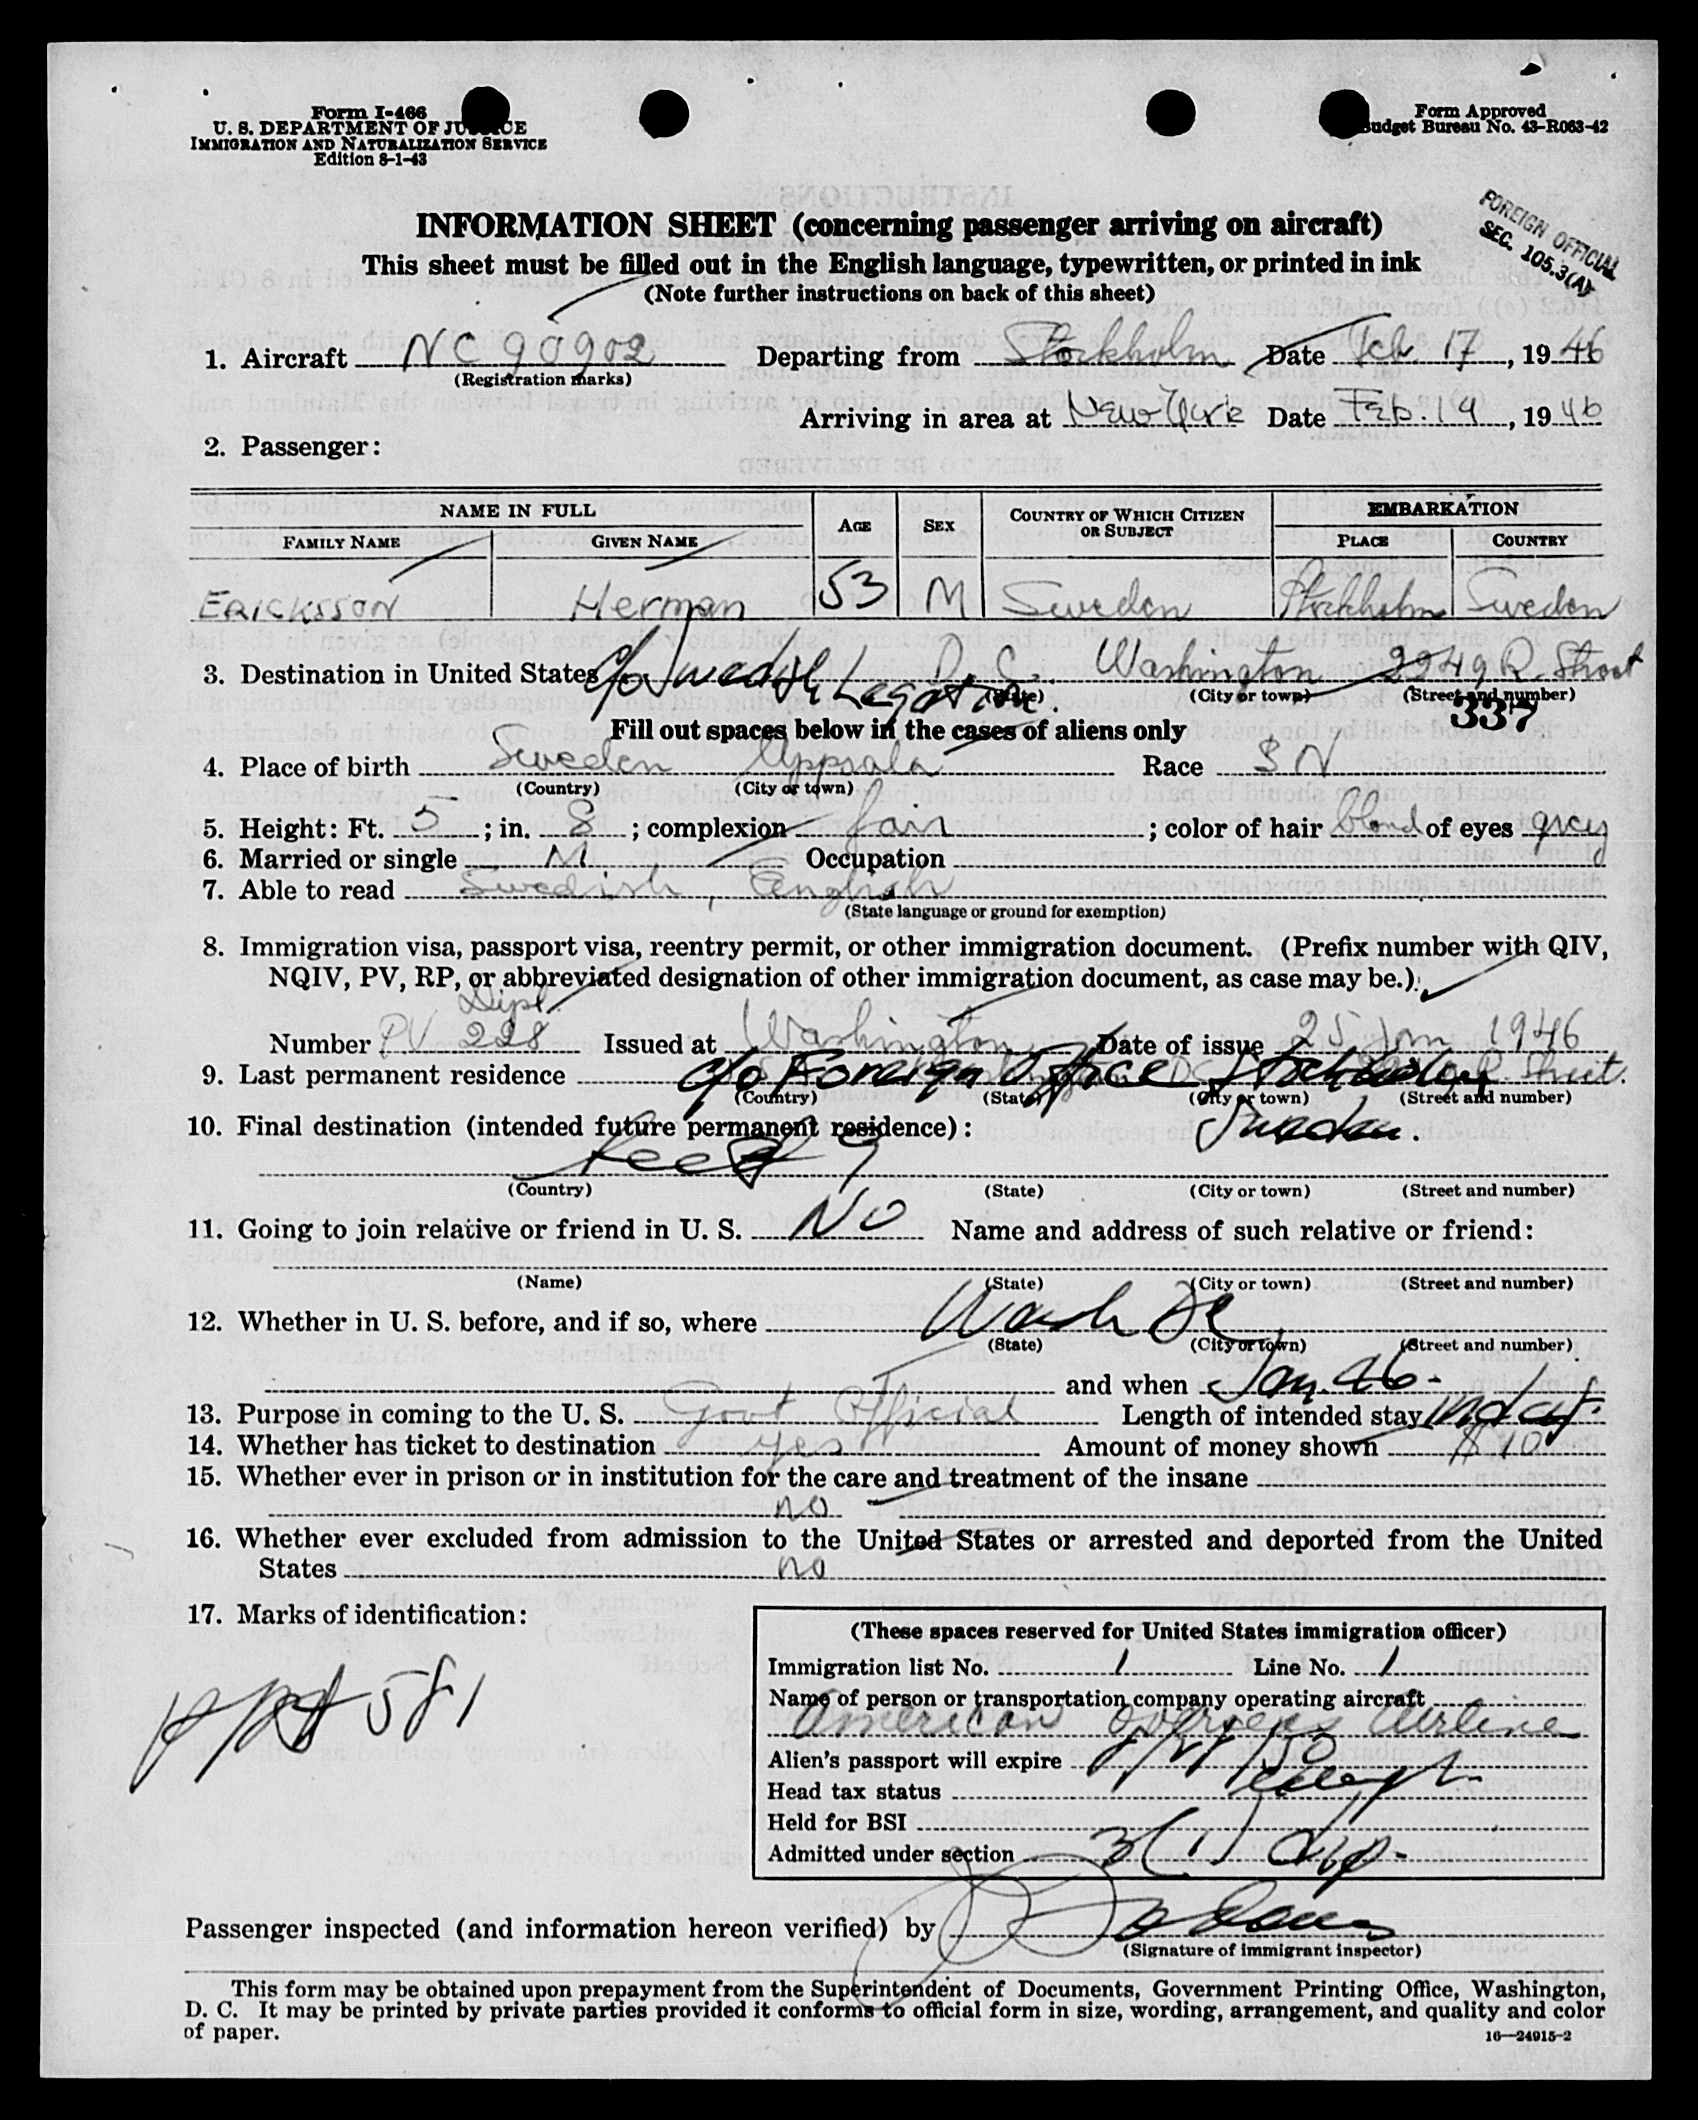 Form I-466
U. S. DEPARTMENT OF JUSTICE
IMMIGRATION AND NATURALIZATION SERVICE
Edition 8-1-43
Form Approved
Budget Bureau No. 43-R063-42
FOREIGN OFFICIAL
SEC. 105.3(A)
INFORMATION SHEET (concerning passenger arriving on aircraft)
This sheet must be filled out in the English language, typewritten, or printed in ink
(Note further instructions on back of this sheet)
1. Aircraft NC 90902 Departing from Stockholm Date Feb. 17, 1946
(Registration marks)
Arriving in area at New York Date Feb. 19, 1946
2. Passenger:
NAME IN FULL AGE SEX COUNTRY OF WHICH CITIZEN OR SUBJECT EMBARKATION
FAMILY NAME GIVEN NAME PLACE COUNTRY
ERICKSSON Herman 53 M Sweden Stockholm Sweden
3. Destination in United States c/o Swedish Legation. D. C. Washington 2249 R. Street
(State) (City or town) (Street and number)
337
Fill out spaces below in the cases of aliens only
4. Place of birth Sweden Uppsala Race S N
(Country) (City or town)
5. Height: Ft. 5; in. 8; complexion fair; color of hair blond of eyes grey
6. Married or single M Occupation
7. Able to read Swedish, English
(State language or ground for exemption)
8. Immigration visa, passport visa, reentry permit, or other immigration document. (Prefix number with QIV,
NQIV, PV, RP, or abbreviated designation of other immigration document, as case may be.)
Dipl.
Number PV 228 Issued at Washington Date of issue 25 Jan 1946
9. Last permanent residence c/o Foreign Office Stockholm R. Street.
(Country) (State) (City or town) (Street and number)
10. Final destination (intended future permanent residence): Sweden.
(Country) (State) (City or town) (Street and number)
11. Going to join relative or friend in U. S. NO Name and address of such relative or friend:
(Name) (State) (City or town) (Street and number)
12. Whether in U. S. before, and if so, where Wash DC
(State) (City or town) (Street and number)
and when Jan. 46.
13. Purpose in coming to the U. S. Govt Official Length of intended stay
14. Whether has ticket to destination yes Amount of money shown $10
15. Whether ever in prison or in institution for the care and treatment of the insane
no
16. Whether ever excluded from admission to the United States or arrested and deported from the United
States no
17. Marks of identification:
ppt 581
(These spaces reserved for United States immigration officer)
Immigration list No. 1 Line No. 1
Name of person or transportation company operating aircraft
American Overseas Airline
Alien's passport will expire
Head tax status
Held for BSI
Admitted under section 3(1) dip.
Passenger inspected (and information hereon verified) by
(Signature of immigrant inspector)
This form may be obtained upon prepayment from the Superintendent of Documents, Government Printing Office, Washington,
D. C. It may be printed by private parties provided it conforms to official form in size, wording, arrangement, and quality and color
of paper.
16—24915-2